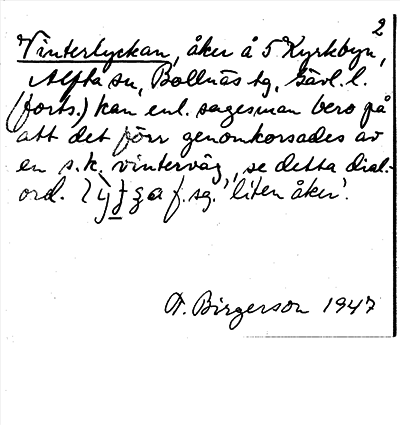 2
Vinterlyckan, åker å 5 Kyrkbyn,
Alfta sn, Bollnäs tg, Gävl. l.
(forts.) kan enl. sagesman bero på
att det förr genomkorsades av
en s.k. vinterväg, se detta dial.-
ord. f. sg. 'liten åker'.
T. Birgerson 1947